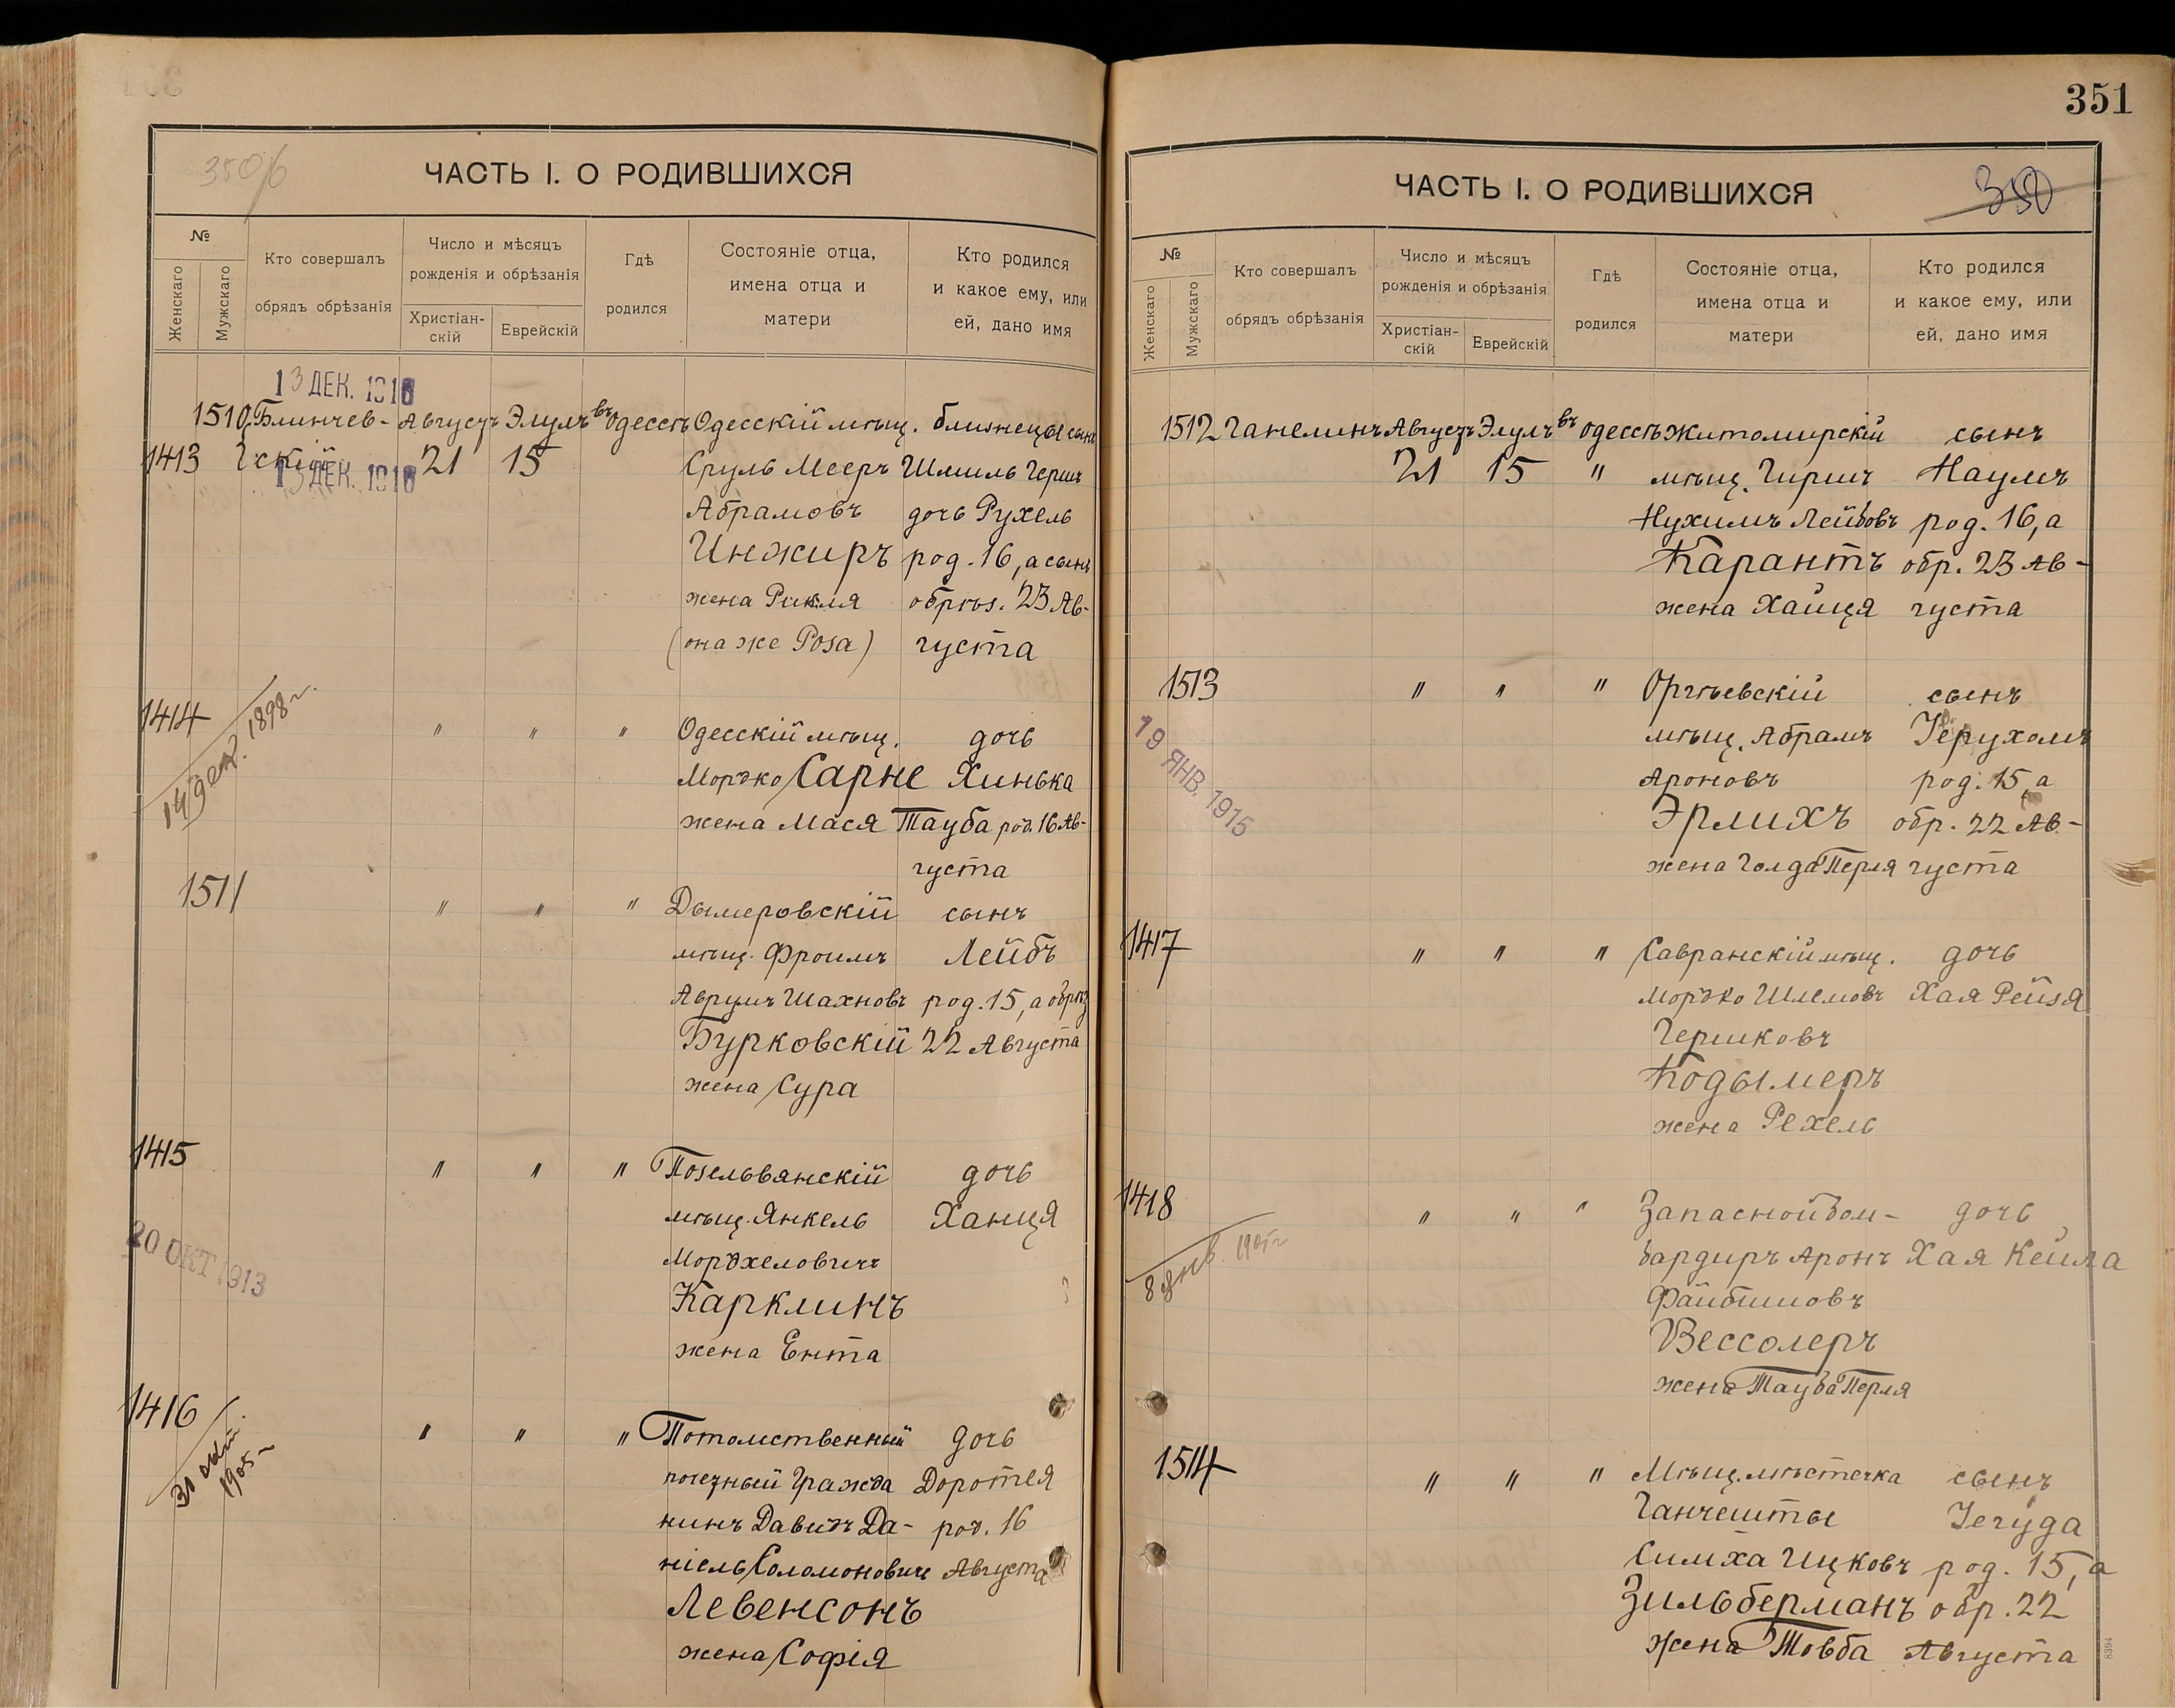 350/б
ЧАСТЬ I. О РОДИВШИХСЯ
№
Женскаго
Мужскаго
Кто совершалъ
обрядъ обрѣзанія
Число и мѣсяцъ
рожденія и обрѣзанія
Христіан-
скій
Еврейскій
Гдѣ
родился
Состояніе отца,
имена отца и
матери
Кто родился
и какое ему, или
ей, дано имя
13 ДЕК. 1916
1510 Блинчев- Августъ Элулъ въ Одессѣ Одесскій мѣщ. близнецы сынъ
1413 чскій 21 15 Сруль Мееръ Шмиль Герш
13 ДЕК. 1916
Абрамовъ дочь Рухель
Инжиръ род. 16, а сынъ
жена Рикля обрѣз. 23 Ав-
(она же Роза) густа
1414 " " " Одесскій мѣщ. дочь
1898 г.
Мордко Сарне Хинька
жена Мася Тауба род. 16 Ав-
густа
1511 " " " Дымеровскій сынъ
мѣщ. Фроимъ Лейбъ
Аврумъ Шахновъ род. 15, а обрѣз
Бурковскій 22 Августа
жена Сура
1415 " " " Позельвянскій дочь
мѣщ. Янкель Ханця
20 ОКТ 1913
Мордхеловичъ
Карклинъ
жена Ента
1416 " " " Потомственный дочь
31 окт. 1905 г
почетный Гражда Доротея
нинъ Давидъ Да- род. 16
ніель Соломоновичъ Августа
Левенсонъ
жена Софія
351
ЧАСТЬ I. О РОДИВШИХСЯ
350
№
Женскаго
Мужскаго
Кто совершалъ
обрядъ обрѣзанія
Число и мѣсяцъ
рожденія и обрѣзанія
Христіан-
скій
Еврейскій
Гдѣ
родился
Состояніе отца,
имена отца и
матери
Кто родился
и какое ему, или
ей, дано имя
1512 Ганелинъ Августъ Элулъ въ Одессѣ Житомирскій сынъ
21 15 " мѣщ. Гиршъ Наумъ
Нухимъ Лейбовъ род. 16, а
Карантъ обр. 23 Ав-
жена Хайця густа
1513 " " " Оргѣевскій сынъ
мѣщ. Абрамъ Іерухомъ
19 ЯНВ. 1915
Ароновъ род. 15, а
Эрлихъ обр. 22 Ав-
жена Голда Перля густа
1417 " " " Савранскій мѣщ. дочь
Мордко Шлемовъ Хая Рейзя
Гершковъ
Кодымеръ
жена Рехель
1418 " " " Запасной бом- дочь
8 янв. 1905 г
бардиръ Аронъ Хая Кейла
Файбишовъ
Вессолеръ
жена Тауба Перля
1514 " " " Мѣщ. мѣстечка сынъ
Ганчешты Іегуда
Симха Ицковъ род. 15, а
Зильберманъ обр. 22
жена Товба Августа
8394